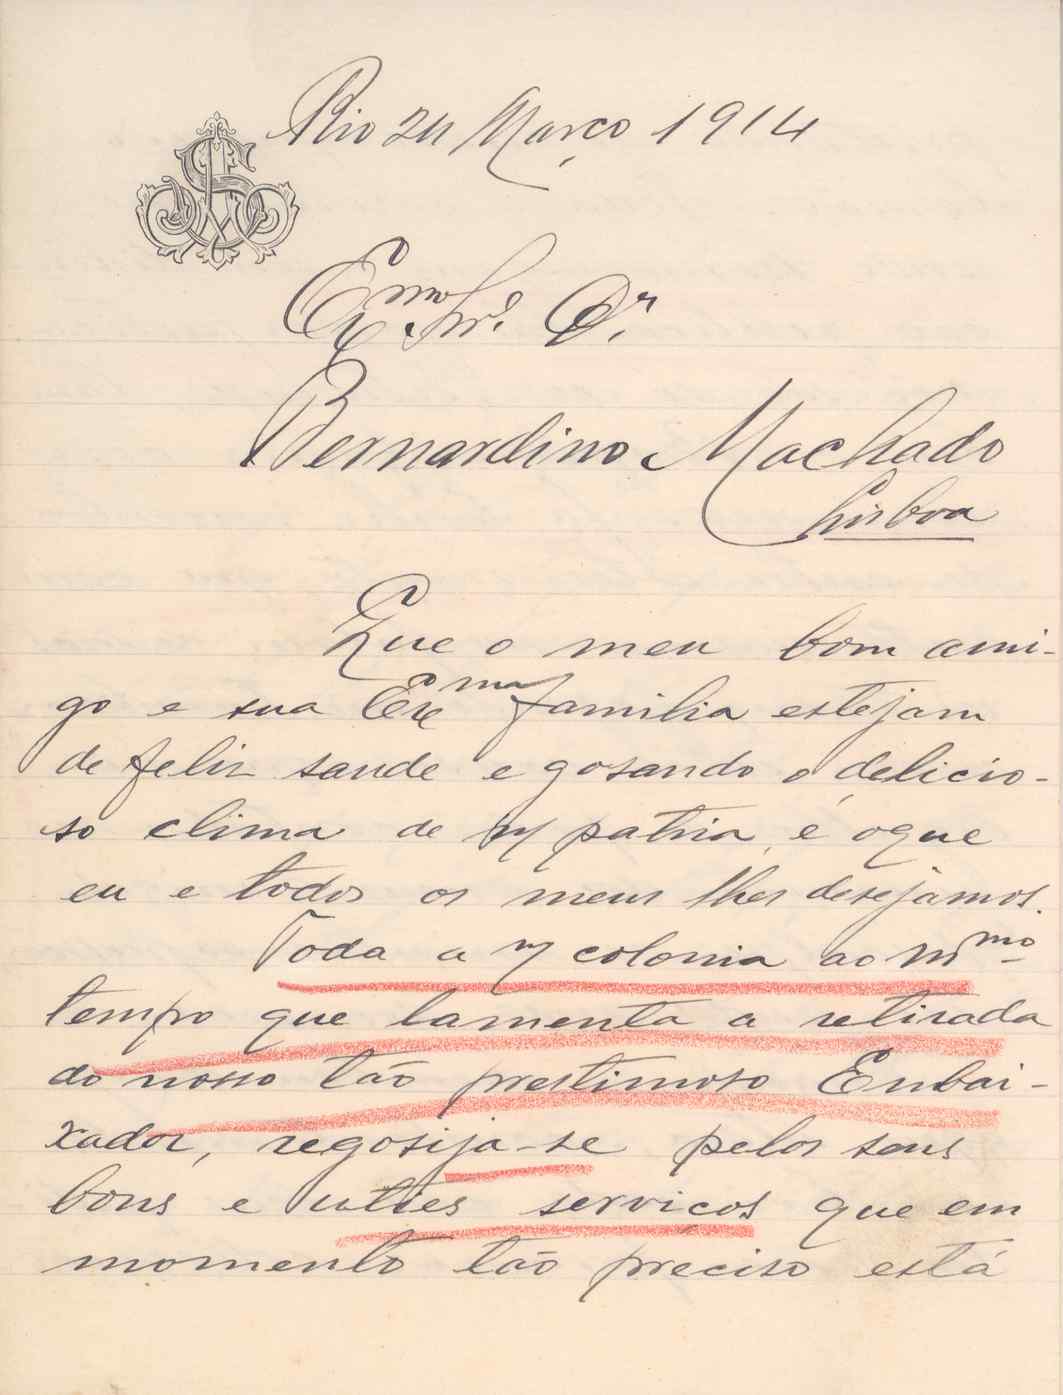 Rio 24 Março 1914
Exmo Snr. Dr.
Bernardino Machado
Lisboa
Que o meu bom ami-
go e sua Exma familia estejam
de feliz saude e gosando o delicio-
so clima de n/ patria, é o que
eu e todos os meus lhes desejamos.
Toda a n/ colonia ao mmo
tempo que lamenta a retirada
do nosso tão prestimoso Enbai-
xador, regosija-se pelos seus
bons e utees serviços que em
momento tão preciso está